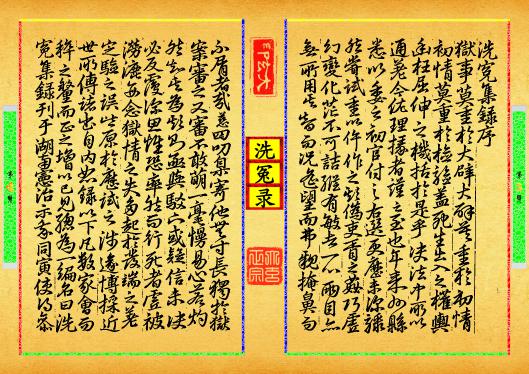 洗冤集錄序
獄事莫重於大辟大辟莫重於初情
初情莫重於檢驗蓋死生出入之權輿
幽枉屈伸之機括於是乎決法中所以
通差令佐理掾者謹之至也年來州縣
悉以委之初官付之右選更歷未深驟
然嘗試重以仵作之欺偽吏胥之姦巧虛
幻變化茫不可詰縱有敏者一心兩目亦
無所用其智而況遙望而弗親掩鼻而
洗冤录
不屑者哉慈四叨臬寄他無寸長獨於獄
案審之又審不敢萌一毫慢易心若灼
然知其為欺則亟與駁下或疑信未決
必反覆深思惟恐率然而行死者虛被
澇漉每念獄情之失多起於發端之差
定驗之誤皆原於歷試之淺遂博採近
世所傳諸書自內恕錄以下凡數家會而
粹之釐而正之增以己見總為一編名曰洗
冤集錄刊于湖南憲治示我同寅使得參